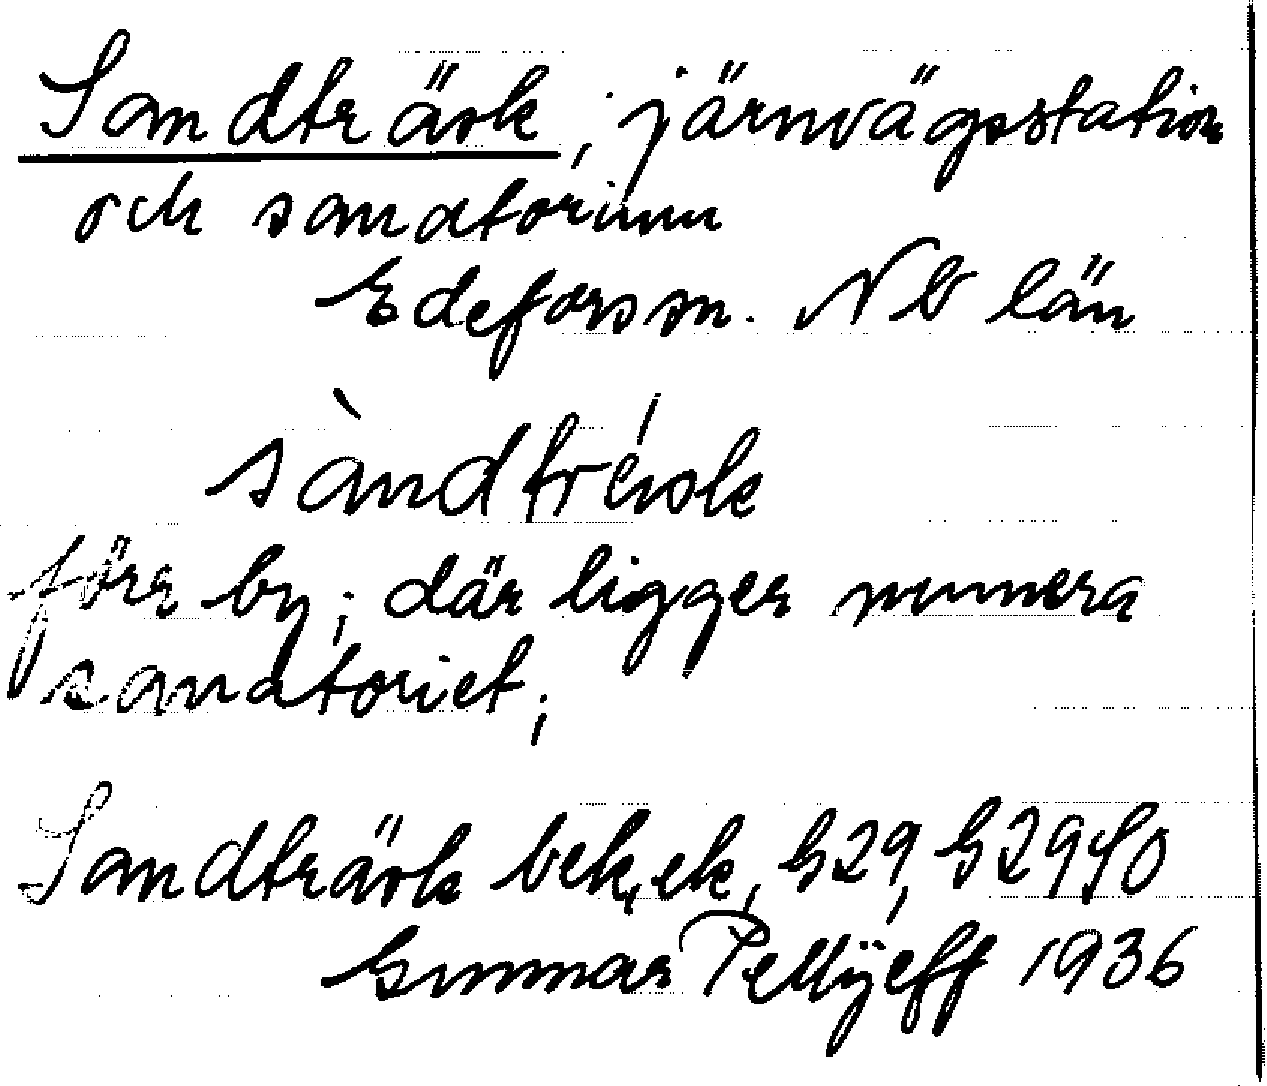 Sandträsk, järnvägsstation
och sanatorium
Edefors sn. Nb län
sàndtrésk
förr by; där ligger numera
sanatoriet;
Sandträsk bek, ek, G29, G29
Gunnar Pellijeff 1936